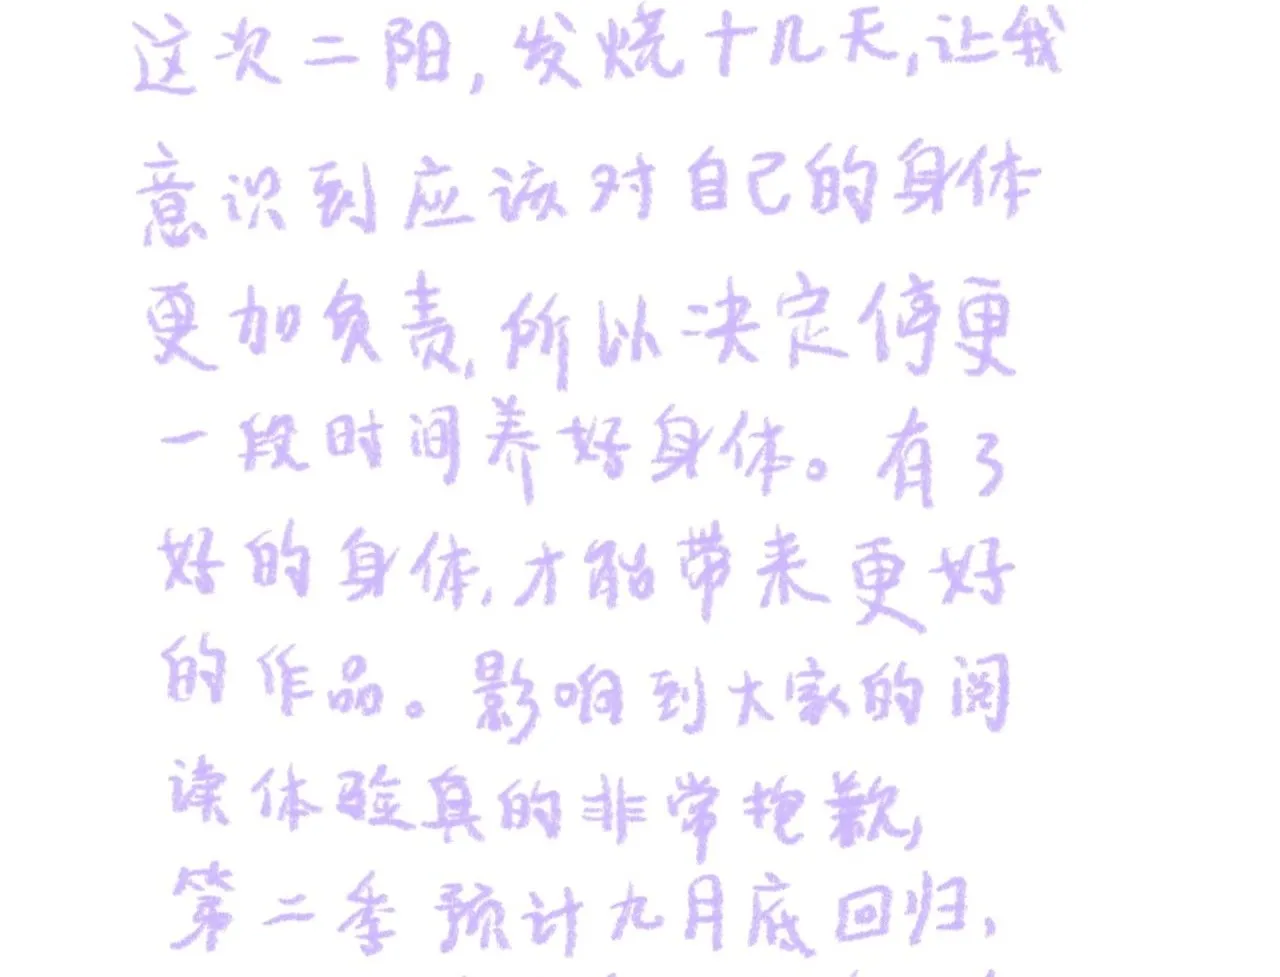 这次二阳,发烧十几天,让我
意识到应该对自己的身体
更加负责,所以决定停更
一段时间养好身体。有了
好的身体,才能带来更好
的作品。影响到大家的阅
读体验真的非常抱歉,
第二季预计九月底回归,